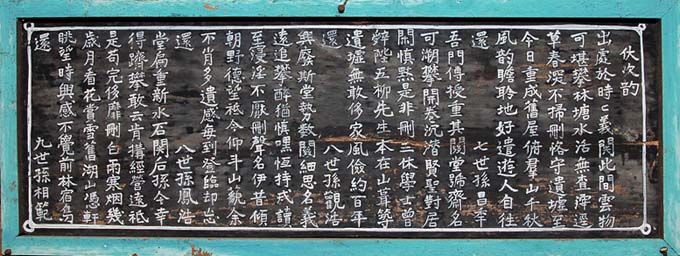 伏次韵
出處於時亡義関此間雲物
可堪攀林塘水活無查滓邇
草春深不掃刪恪守遺墟至
今日重成舊屋俯羣山千秋
風韵瞻聆地好遣遊人自往
還　　七世孫昌
吾門傳授重其関堂號齋名
可溯攀開卷沉潛賢聖對居
閒慎默是非刪三休學士曾
辭陛五柳先生本在山葺等
遺墟無敢侈家風儉約百年
還　　八世孫觀浩
興廢斯堂勢數関細思名義
遠追攀醉猶慎嘿恒持戒讀
至浸淫不厭刪聲名伊昔傾
朝野德望祇今仰斗山藐余
不肖多遺感每到登臨却忘
還　　八世孫鳳浩
堂扁重新水石関后孫今幸
得躋攀敢云肯搆經營遠祇
是苟完侈靡刪白雨寒烟幾
歲月看花賞雪舊湖山憑軒
眺望時興感不覺前林宿鳥
還　　九世孫相範